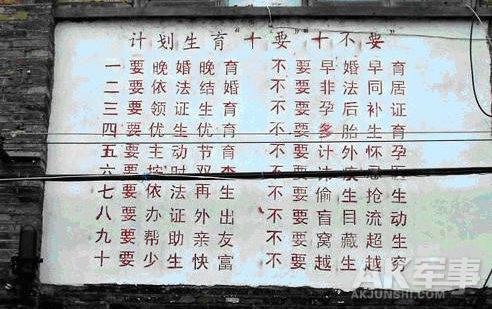 计划生育“十要”“十不要”
一要晚婚晚育 不要早婚早育
二要依法结婚 不要非法同居
三要领证生育 不要孕后补证
四要优生优育 不要多胎生育
五要主动节育 不要计外怀孕
六要按时双查 不要疾忌
七要依法再生 不要偷生抢生
八要办证外出 不要盲目流动
九要帮助亲友 不要窝藏超生
十要少生快富 不要越生越穷
AK军事
AKJUNSHI.COM